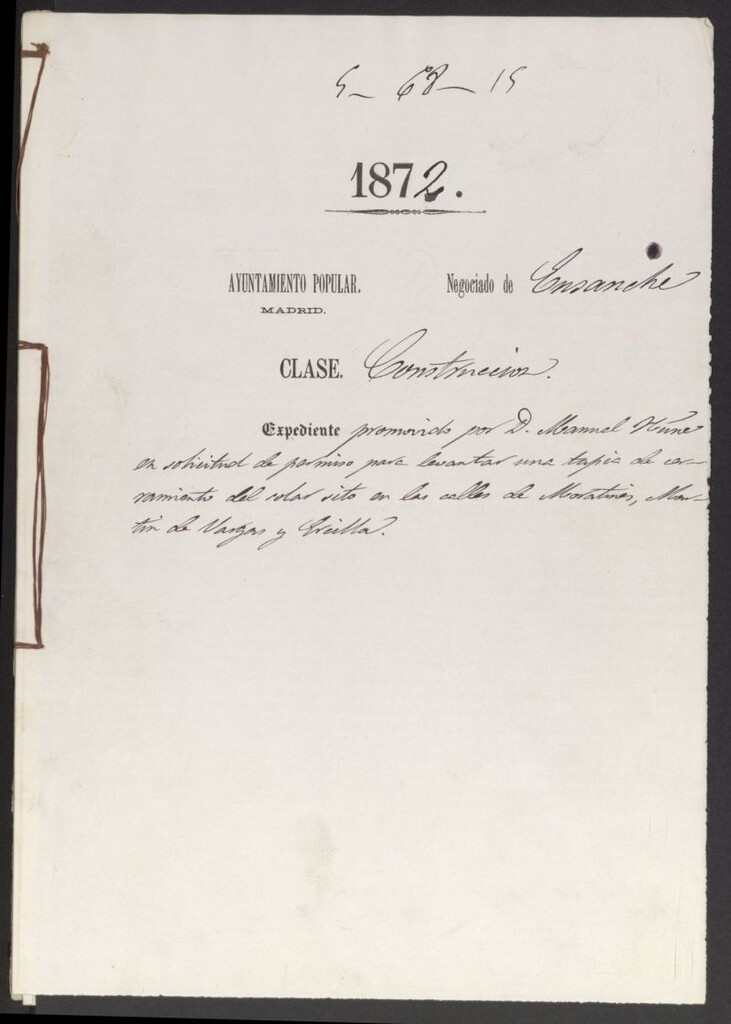 5 — 68 — 15
1872.
AYUNTAMIENTO POPULAR.
MADRID.
Negociado de Ensanche
CLASE. Construccion.
Expediente promovido por D. Manuel Núñe
en solicitud de permiso para levantar una tapia de cer-
ramiento del solar sito en las calles de Moratines, Mar-
tin de Vargas y Ercilla.